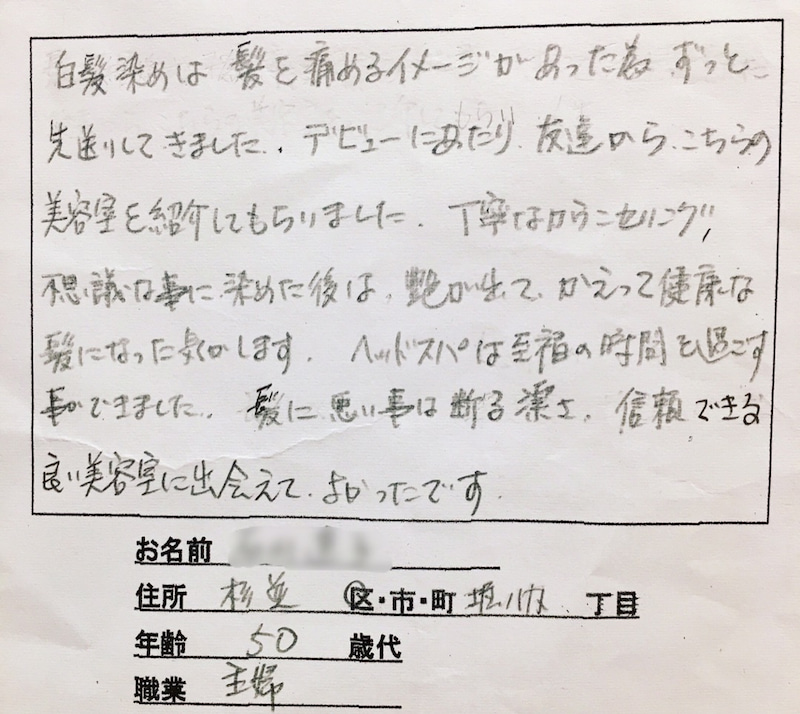 白髪染めは 髪を痛めるイメージがあった為 ずっと、
先送りしてきました。デビューにあたり、友達から、こちらの
美容室を紹介してもらいました。丁寧なカウンセリング、
不思議な事に 染めた後は、艶が出て、かえって健康な
髪になった気がします。 ヘッドスパは至福の時間を過ごす
事ができました。 髪に悪い事は断る潔さ、信頼できる
良い美容室に出会えて、よかったです。
お名前
住所 杉並 区・市・町 堀ノ内 丁目
年齢 50 歳代
職業 主婦